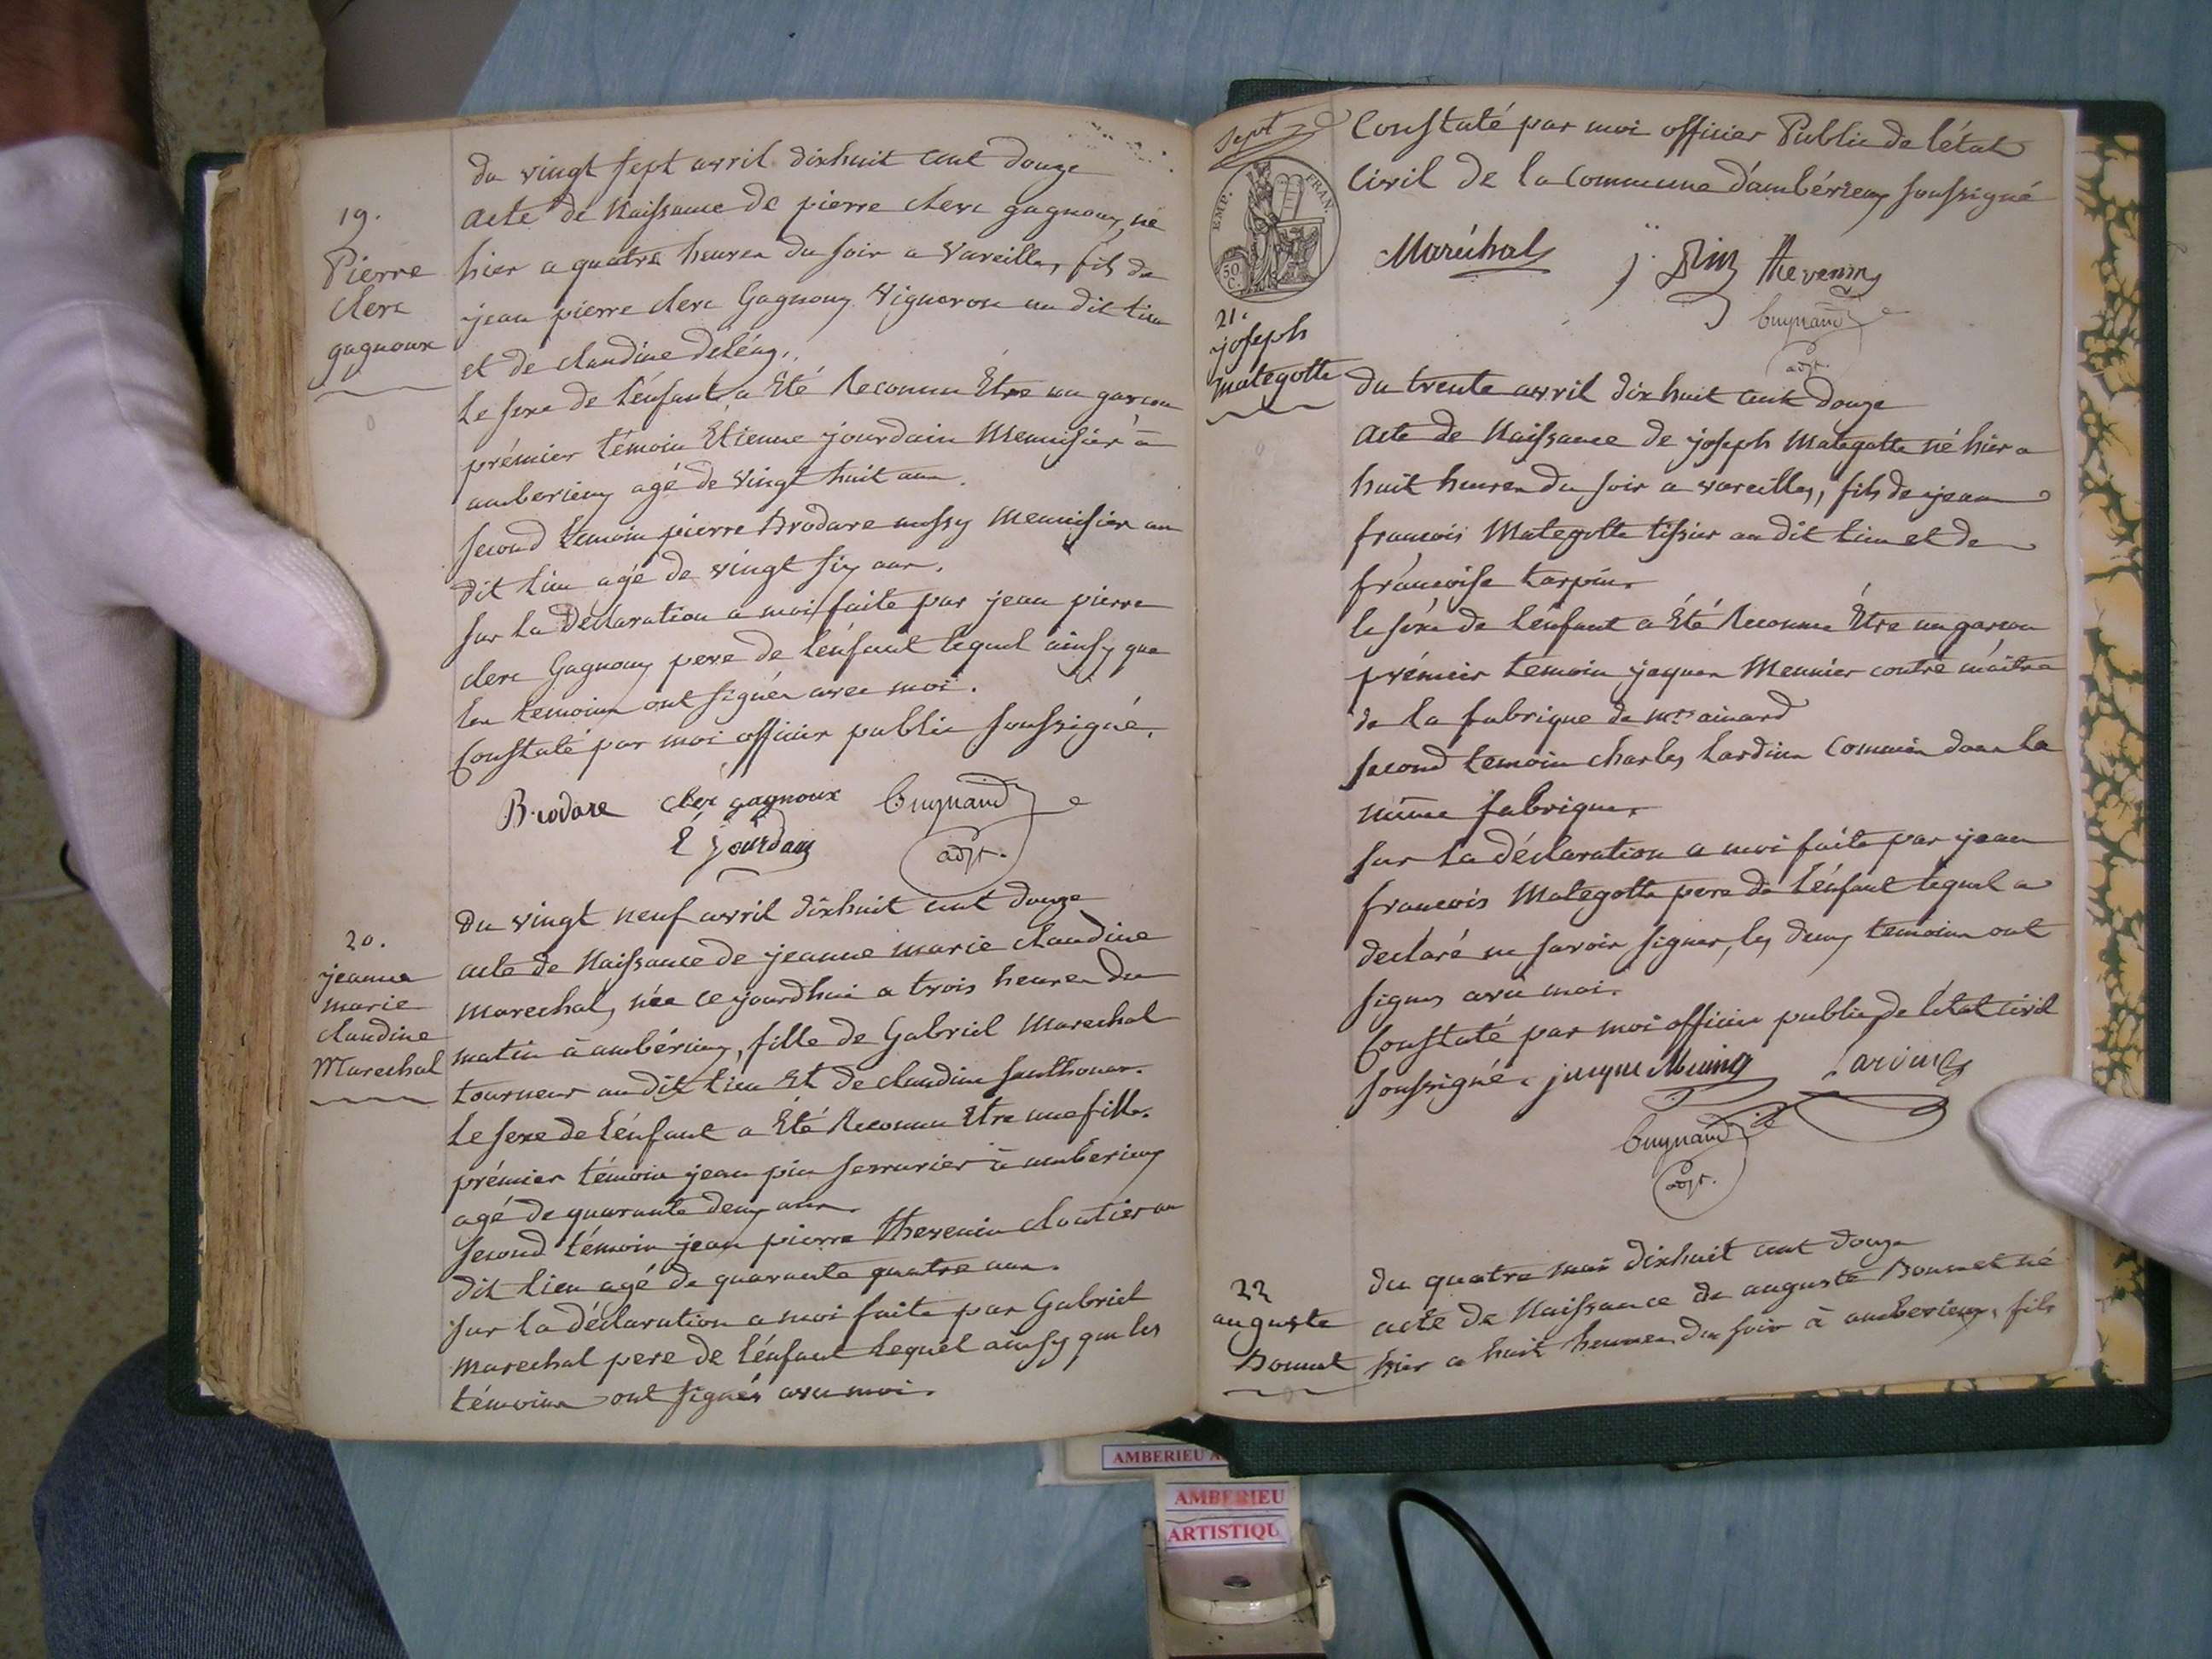 du vingt sept avril dixhuit cent douze
19.
Pierre
clerc
gagnoux
acte de Naissance de pierre clerc gagnoux, né
hier a quatre heures du soir a Vareilles, fils de
jean pierre clerc Gagnoux Vigneron au dit lieu
et de claudine
Le sexe de l'énfant a Eté Reconnu Etre un garcon
prémier témoin Etienne jourdain Menuisier à
amberieux agé de Vingt huit ans.
second temoin pierre Brodare mossy Menuisier au
dit lieu agé de vingt six ans.
sur la Déclaration a moi faite par jean pierre
clerc Gagnoux pere de l'énfant lequel ainsy que
les temoins ont signés avec moi.
Constaté par moi officier public soussigné.
Brodare clerc gagnoux Guynand
E jourdain adjt.
20.
jeanne
marie
claudine
Marechal
du vingt neuf avril dixhuit cent douze
acte de Naissance de jeanne marie claudine
marechal, née ce jourdhui a trois heures du
matin à ambérieux, fille de Gabriel Marechal
tourneur au dit lieu Et de claudine
Le sexe de l'énfant a Eté Reconnu Etre une fille.
prémier témoin jean pin serrurier à amberieux
agé de quarante deux ans.
second témoin jean pierre thevenin cloutier au
dit lieu agé de quarante quatre ans.
sur la déclaration a moi faite par Gabriel
marechal pere de l'énfant lequel ainsy que les
témoins ont signés avec moi.
sept
EMP. FRAN.
50 C.
Constaté par moi officier Public de l'état
Civil de la Commune d'ambérieux soussigné
Maréchal j. Pin thevenin
Guynand
adjt.
21.
joseph
Mategotte
du trente avril dix huit cent douze
acte de Naissance de joseph Mategotte né hier a
huit heures du soir a vareilles, fils de jean
francois Mategotte tissier au dit lieu et de
francoise tarpin.
le sexe de l'énfant a Eté Reconnu Etre un garcon
prémier temoin jaques Meunier contre maître
de la fabrique de mrs ainard
second temoin charles Lardin Commis dans la
même fabrique.
sur la déclaration a moi faite par jean
francois Mategotte pere de l'énfant lequel a
declaré ne savoir signer, les deux temoins ont
signes avec moi.
Constaté par moi officier public de l'état civil
soussigné.
Guynand
adjt.
22
auguste
Bonnet
du quatre mai dixhuit cent douze
acte de Naissance de auguste Bonnet né
hier a huit heures du soir à amberieux, fils
AMBERIEU
AMBERIEU
ARTISTIQU